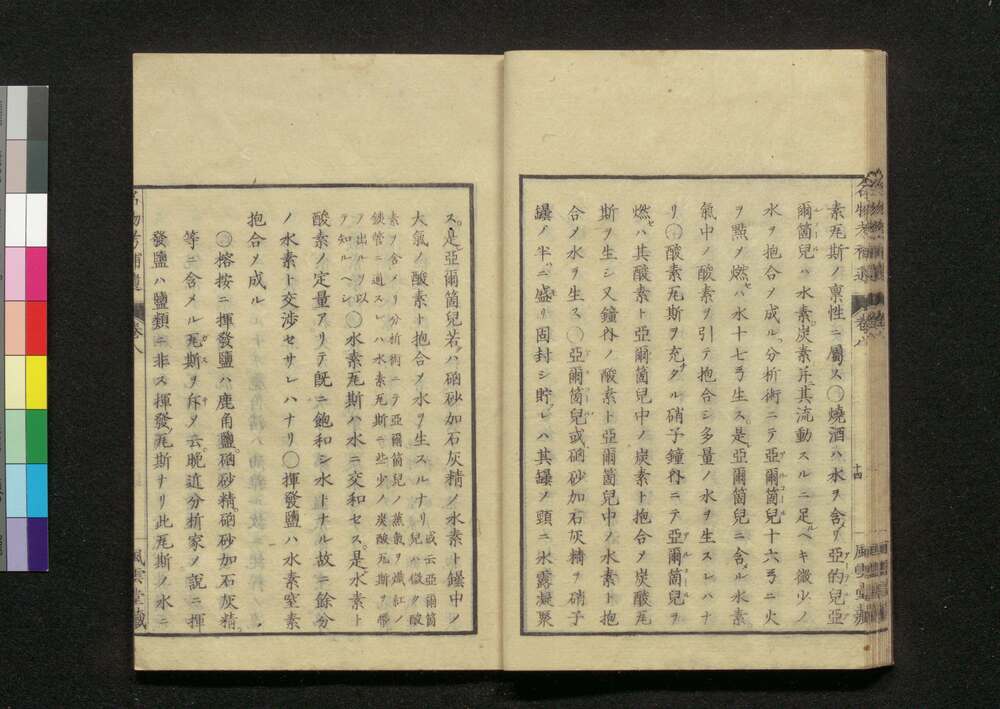 素瓦斯ノ稟性ニ屬ス○燒酒ハ水ヲ含メリ亞的兒亞
爾箇兒ハ水素炭素并其流動スルニ足ルヘキ微少ノ
水ヲ抱合メ成ル分析術ニテ亞爾箇兒十六弓ニ火
ヲ點メ燃セハ水十七弓生ス是レ亞爾箇兒ニ含メル水素
氣中ノ酸素ヲ引テ抱合シ多量ノ水ヲ生スレハナ
リ○酸素瓦斯ヲ充タル硝子鐘內ニテ亞爾箇兒ヲ
燃セハ其酸素ト亞爾箇兒中ノ炭素ト抱合メ炭酸瓦
斯ヲ生シ又鐘內ノ酸素ト亞爾箇兒中ノ水素ト抱
合メ水ヲ生ス○亞爾箇兒或硇砂加石灰精ヲ硝子
罎ノ半ニ盛リ固封シ貯レハ其罎ノ頭ニ水露凝聚
ス是レ亞爾箇兒若クハ硇砂加石灰精ノ水素ト罎中ノ
大氣ノ酸素ト抱合メ水ヲ生スルナリ
或云亞爾箇兒ハ微少ノ酸
素ヲ含メリ分析術ニテ亞爾箇兒ノ蒸氣ヲ熾紅ノ
銕管ニ通スレハ水素瓦斯ニ些少ノ炭酸瓦斯ヲ帶
ヲ出ルヲ以
ヲ知ルヘシ
○水素瓦斯ハ水ニ交和セス是レ水素ト
酸素ノ定量アリテ旣ニ飽和シ水トナル故ニ餘分
ノ水素ト交涉セサレハナリ○揮發鹽ハ水素窒素
抱合メ成ル
○榕按ニ揮發鹽ハ鹿角鹽硇砂精硇砂加石灰精
等ニ含メル瓦斯ヲ斥メ云晚近分析家ノ說ニ揮
發鹽ハ鹽類ニ非ス揮發瓦斯ナリ此瓦斯ノ水ニ
名物考補遺
卷八
風雲堂藏